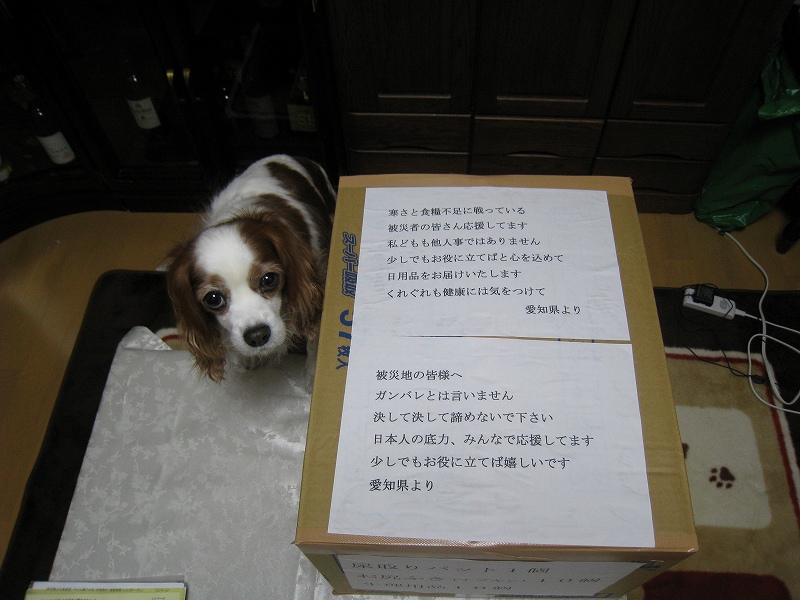 寒さと食糧不足に戦っている
被災者の皆さん応援してます
私どもも他人事ではありません
少しでもお役に立てばと心を込めて
日用品をお届けいたします
くれぐれも健康には気をつけて
愛知県より
被災地の皆様へ
ガンバレとは言いません
決して決して諦めないで下さい
日本人の底力、みんなで応援してます
少しでもお役に立てば嬉しいです
愛知県より
尿取りパット1個